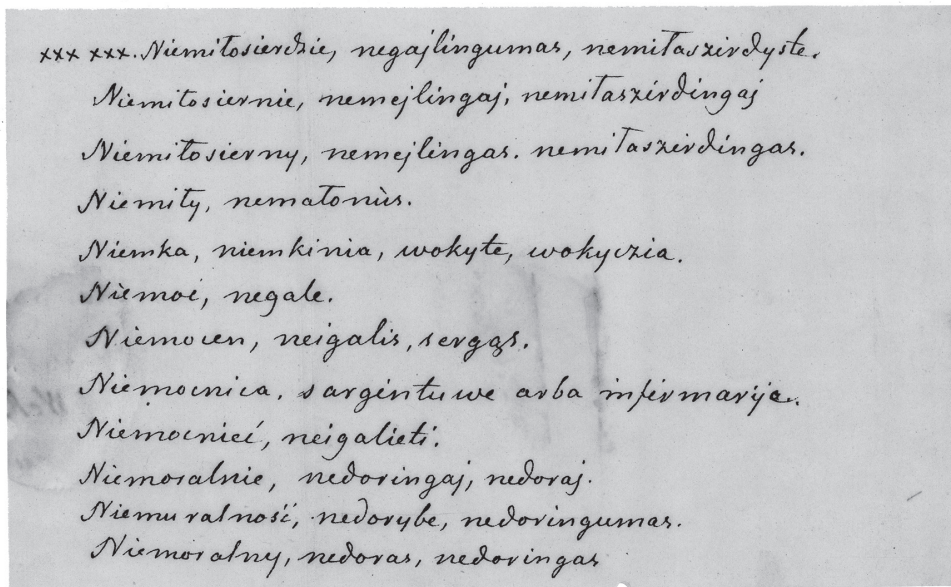 xxx xxx. Niemiłosierdzie, negajlingumas, nemiłaszirdyste.
Niemiłosiernie, nemejlingaj, nemiłaszirdingaj
Niemiłosierny, nemejlingas. nemiłaszirdingas.
Niemiły, nemalonùs.
Niemka, niemkinia, wokyte, wokyczia.
Niemoc, negale.
Niemocen, neigalis, sergąs.
Niemocnica, sargintuwe arba infirmarija.
Niemocnieć, neigalieti.
Niemoralnie, nedoringaj, nedoraj.
Niemuralność, nedorybe, nedoringumas.
Niemoralny, nedoras, nedoringas